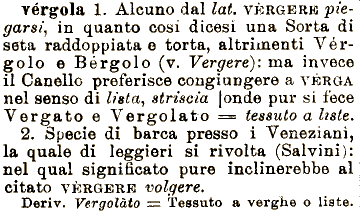 vérgola 1. Alcuno dal lat. VÈRGERE pie-
garsi, in quanto così dicesi una Sorta di
seta raddoppiata e torta, altrimenti Vér-
golo e Bérgolo (v. Vergere): ma invece
il Canello preferisce congiungere a VÈRGA
nel senso di lista, striscia [onde pur si fece
Vergato e Vergolato = tessuto a liste.
2. Specie di barca presso i Veneziani,
la quale di leggieri si rivolta (Salvini):
nel qual significato pure inclinerebbe al
citato VÈRGERE volgere.
Deriv. Vergolàto = Tessuto a verghe o liste.